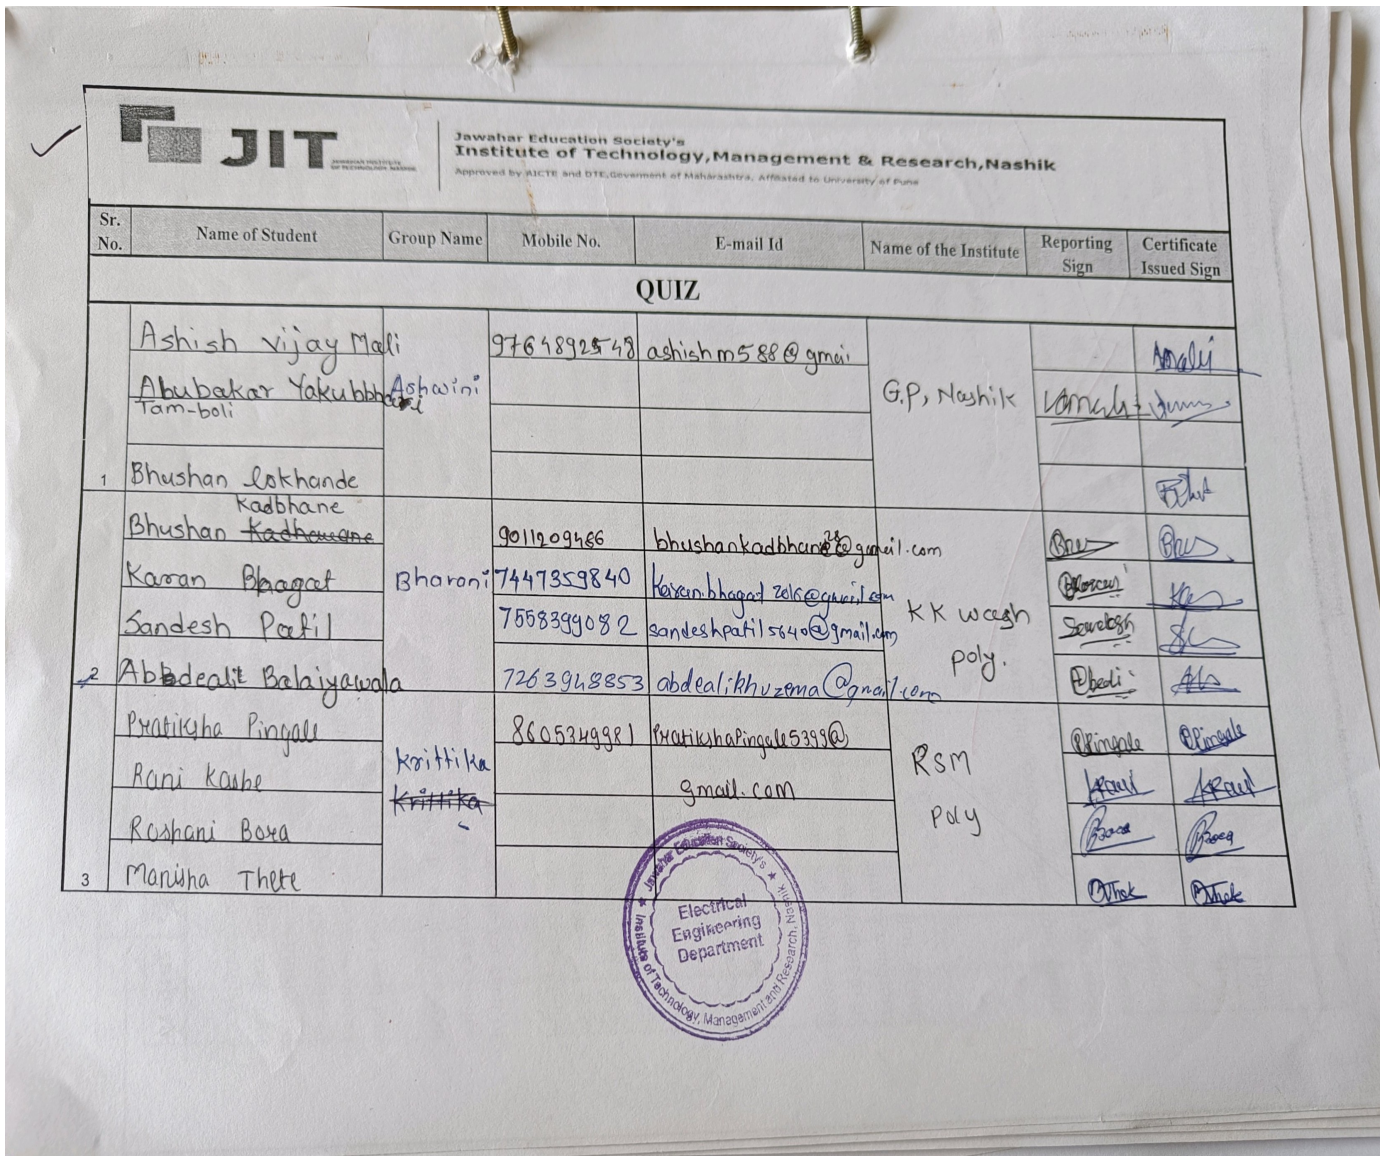 JIT
JAWAHAR INSTITUTE
OF TECHNOLOGY, NASHIK
Jawahar Education Society's
Institute of Technology,Management & Research,Nashik
Approved by AICTE and DTE,Goverment of Maharashtra, Affliated to University of Pune
Sr. No. Name of Student Group Name Mobile No. E-mail Id Name of the Institute Reporting Sign Certificate Issued Sign
QUIZ
Ashish vijay Mali 9764892548 ashishm588@gmai
Abubakar Yakubbhai Ashwini G.P, Nashik
Tam-boli
1 Bhushan lokhande
Kadbhane
Bhushan 9011209466 bhushankadbhane28@gmail.com
Karan Bhagat Bharani 7447359840 karan.bhagat2016@gmail.com
Sandesh Patil 7558399082 sandeshpatil5640@gmail.com KK wagh
poly.
2 Abdeali Balaiyawala 7263948853 abdealikhuzema@gmail.com
Pratiksha Pingale 8605349981 PratikshaPingale5399@
Krittika RSM
Rani Kasbe gmail.com
Krittika
Roshani Bora poly
3 Manisha Thete
Jawahar Education Society's
Electrical
Engineering
Department
Institute of Technology, Management and Research, Nashik